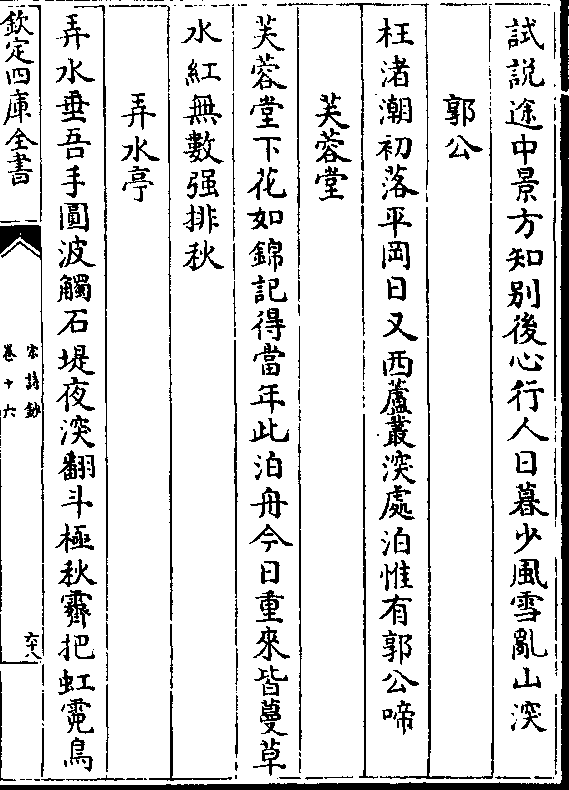 試説途中景方知别後心行人日暮少風雪亂山深
郭公
枉渚潮初落平岡日又西蘆叢深處泊惟有郭公啼
芙蓉堂
芙蓉堂下花如錦記得當年此泊舟今日重來皆蔓草
水紅無數强排秋
弄水亭
弄水垂吾手圓波觸石堤夜深翻斗極秋霽把虹霓鳥
欽定四庫全書
宋詩鈔
卷十六
六十八